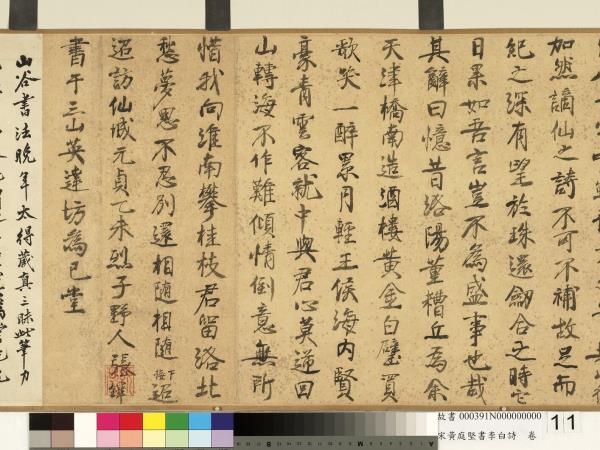 加然謫仙之詩不可不補故足而
紀之深有望於珠還劍合之時它
日果如吾言豈不為盛事也哉
其辭曰憶昔洛陽董糟丘為余
天津橋南造酒樓黃金白璧買
歌笑一醉累月輕王侯海內賢
豪青雲客就中與君心莫逆回
山轉海不作難傾情倒意無所
惜我向淮南攀桂枝君留洛北
愁夢思不忍別還相隨相隨下接迢
迢訪仙城元貞乙未烈子野人張鐸
書于三山英達坊為已堂
山谷書法晚年太得藏真三昧此筆力
故書 000391N000000000
宋黃庭堅書李白詩 卷
11